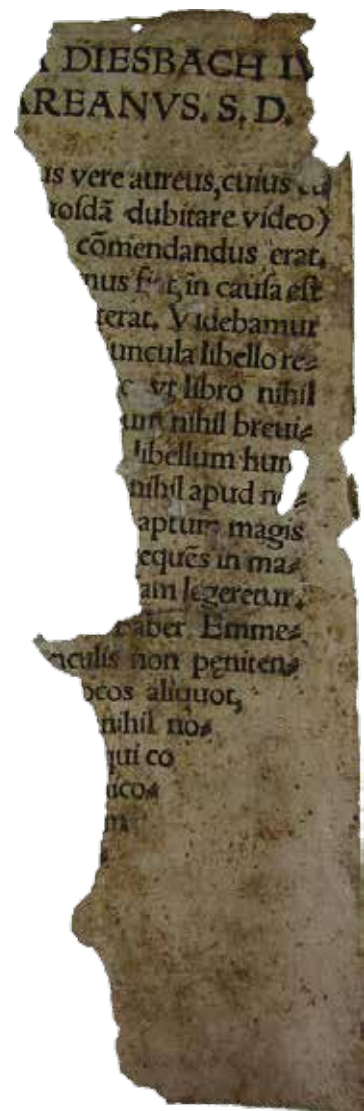 DIESBACH
AREANVS. S. D.
us vere aureus, cuius
uosdā dubitare video)
cōmendandus erat.
nus in causa est
terat. Videbamur
uncula libello re⸗
vt libro nihil
um nihil breui⸗
libellum hun
nihil apud
aptum magis
equēs in ma⸗
am legeretur.
aber Emme⸗
nculis non peniten⸗
ocos aliquot,
nihil no⸗
qui co
ico⸗
m